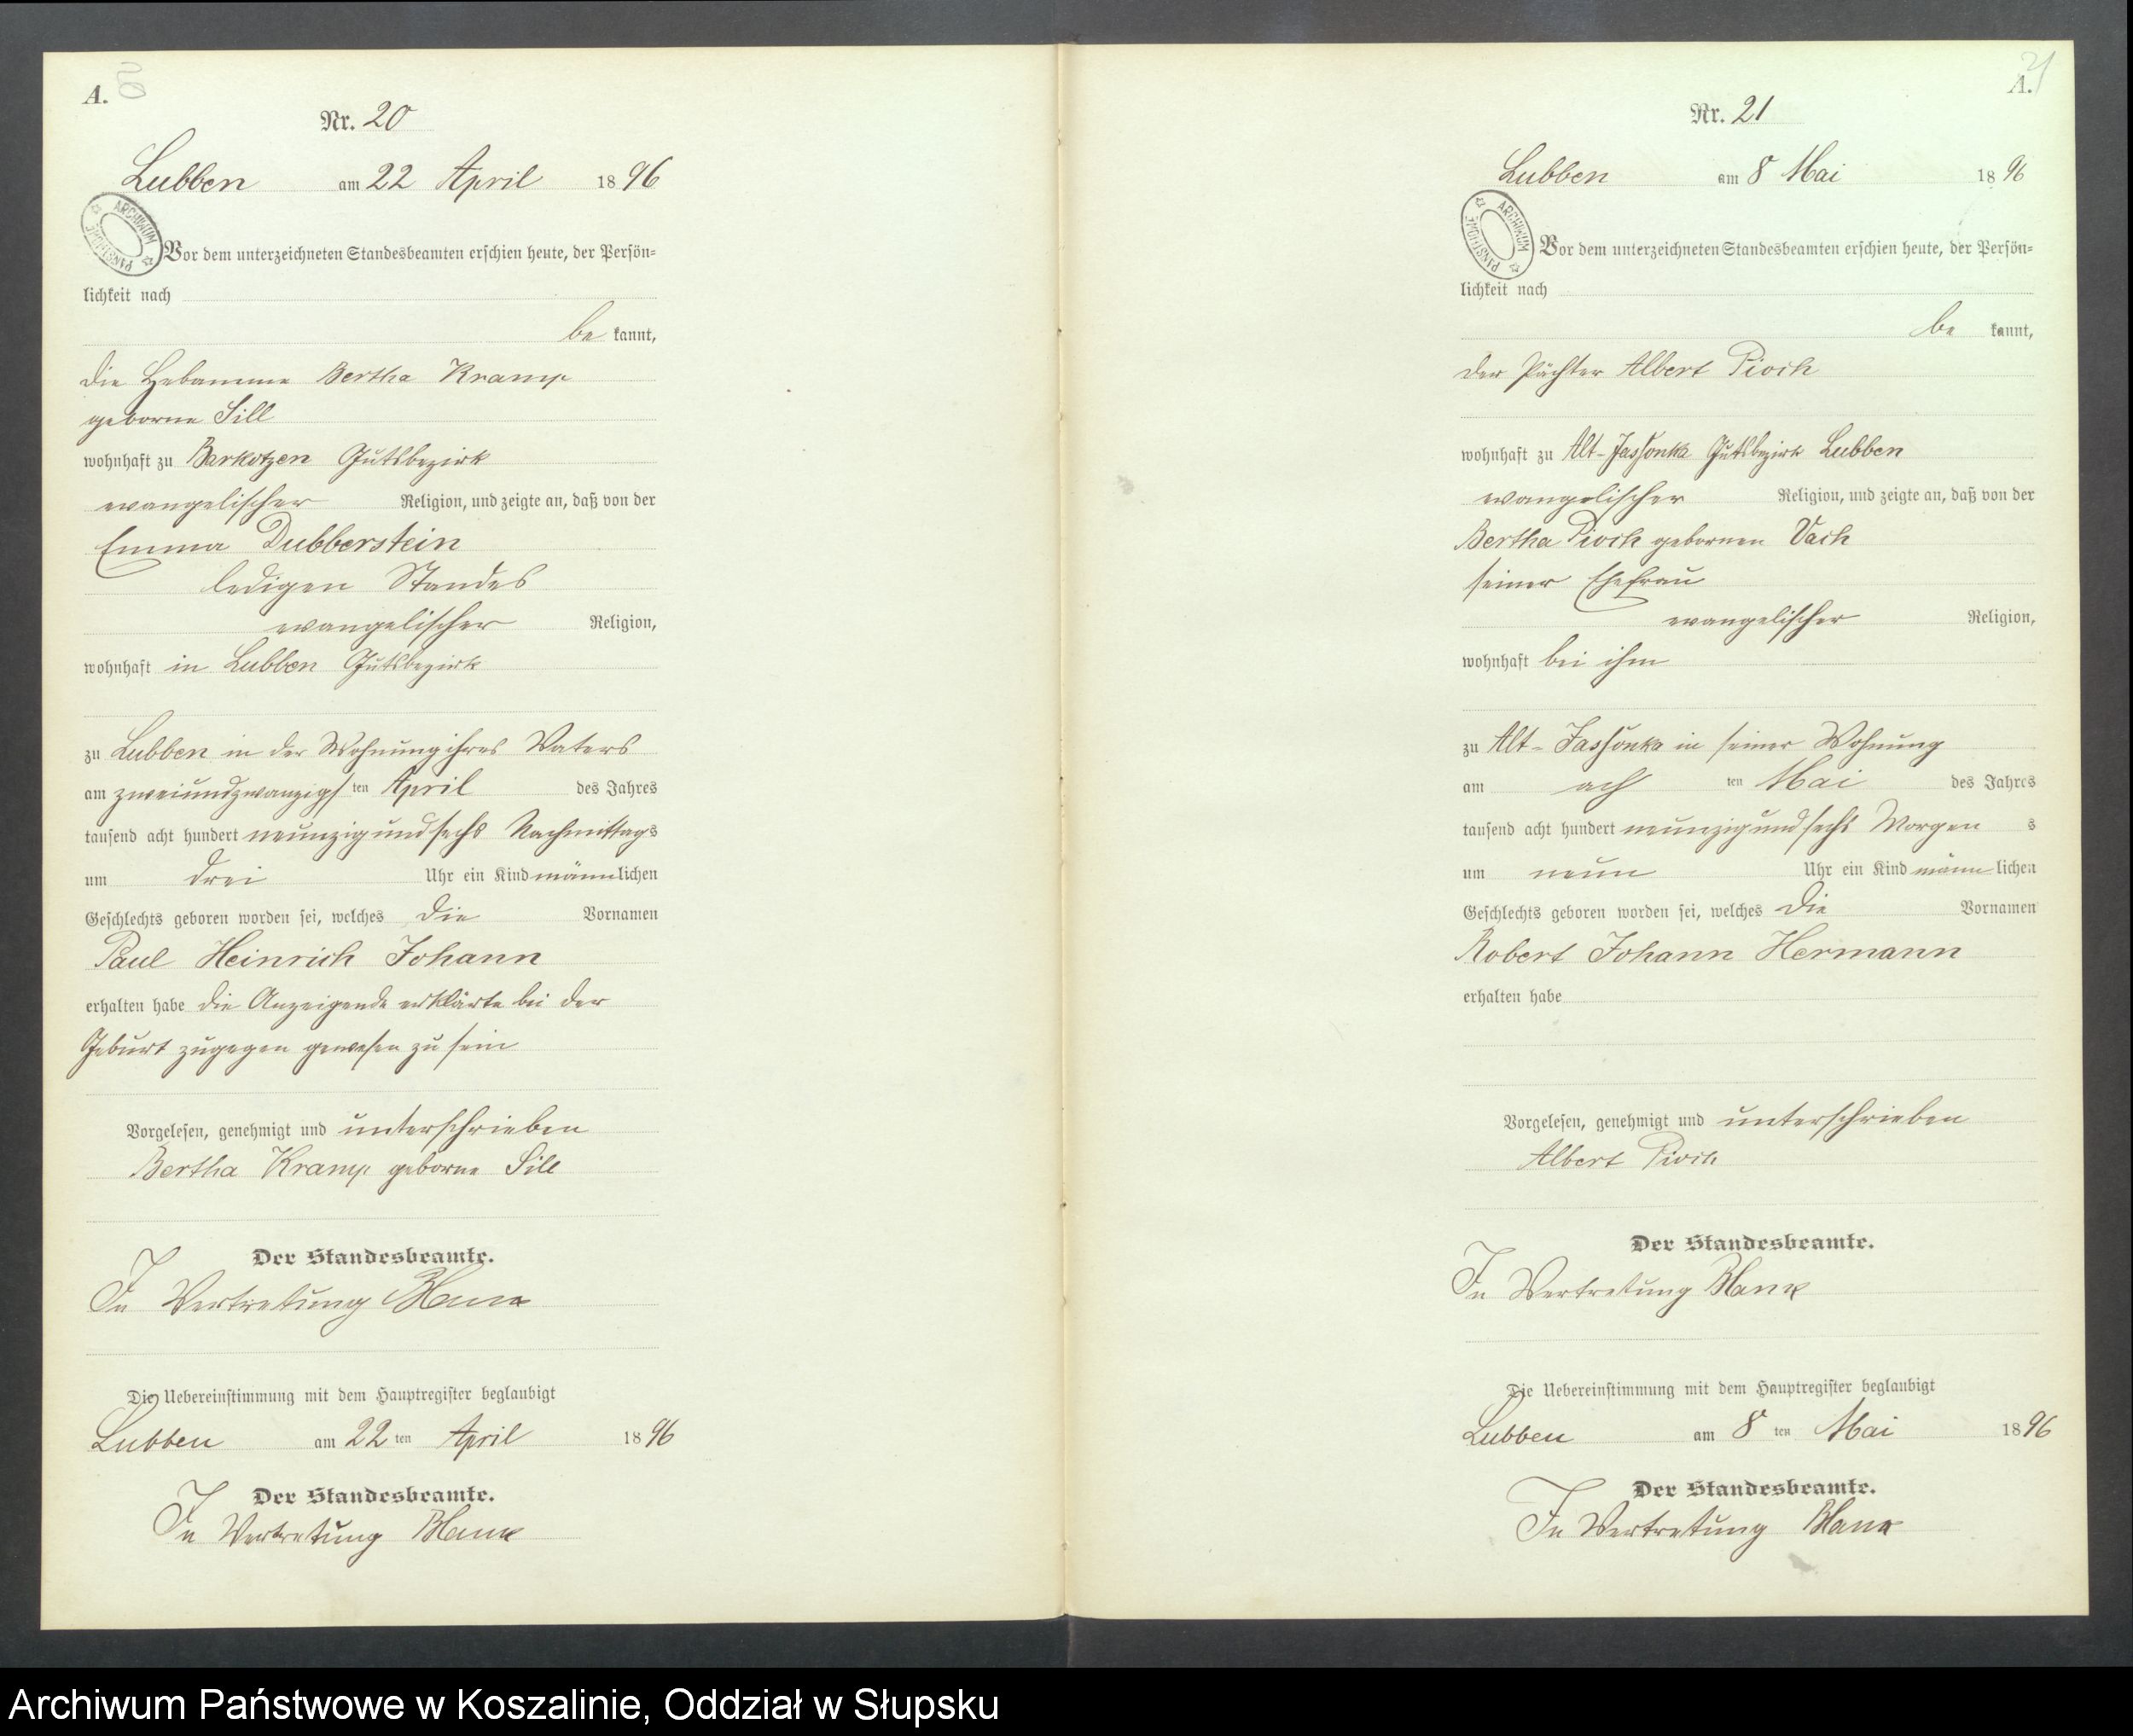 A.
20
Nr. 20
Lubben am 22 April 1896
ARCHIWUM PAŃSTWOWE
Vor dem unterzeichneten Standesbeamten erschien heute, der Persön-
lichkeit nach
be kannt,
die Hebamme Bertha Kramp
geborne Sill
wohnhaft zu Barkotzen Gutsbezirk
evangelischer Religion, und zeigte an, daß von der
Emma Dubberstein
ledigen Standes
evangelischer Religion,
wohnhaft in Lubben Gutsbezirk
zu Lubben in der Wohnung ihres Vaters
am zweiundzwanzigsten April des Jahres
tausend acht hundert neunzig und sechs Nachmittags
um drei Uhr ein Kind männlichen
Geschlechts geboren worden sei, welches die Vornamen
Paul Heinrich Johann
erhalten habe die Anzeigende erklärte bei der
Geburt zugegen gewesen zu sein
Vorgelesen, genehmigt und unterschrieben
Bertha Kramp geborne Sill
Der Standesbeamte.
In Vertretung
Die Uebereinstimmung mit dem Hauptregister beglaubigt
Lubben am 22 ten April 1896
Der Standesbeamte.
In Vertretung
A.
21
Nr. 21
Lubben am 8 Mai 1896
ARCHIWUM PAŃSTWOWE
Vor dem unterzeichneten Standesbeamten erschien heute, der Persön-
lichkeit nach
be kannt,
der Pächter Albert Pioch
wohnhaft zu Alt-Jassonka Gutsbezirk Lubben
evangelischer Religion, und zeigte an, daß von der
Bertha Pioch gebornen Vach
seiner Ehefrau
evangelischer Religion,
wohnhaft bei ihm
zu Alt-Jassonka in seiner Wohnung
am ach ten Mai des Jahres
tausend acht hundert neunzig und sechs Morgen s
um neun Uhr ein Kind männ lichen
Geschlechts geboren worden sei, welches die Vornamen
Robert Johann Hermann
erhalten habe
Vorgelesen, genehmigt und unterschrieben
Albert Pioch
Der Standesbeamte.
In Vertretung
Die Uebereinstimmung mit dem Hauptregister beglaubigt
Lubben am 8 ten Mai 1896
Der Standesbeamte.
In Vertretung
Archiwum Państwowe w Koszalinie, Oddział w Słupsku